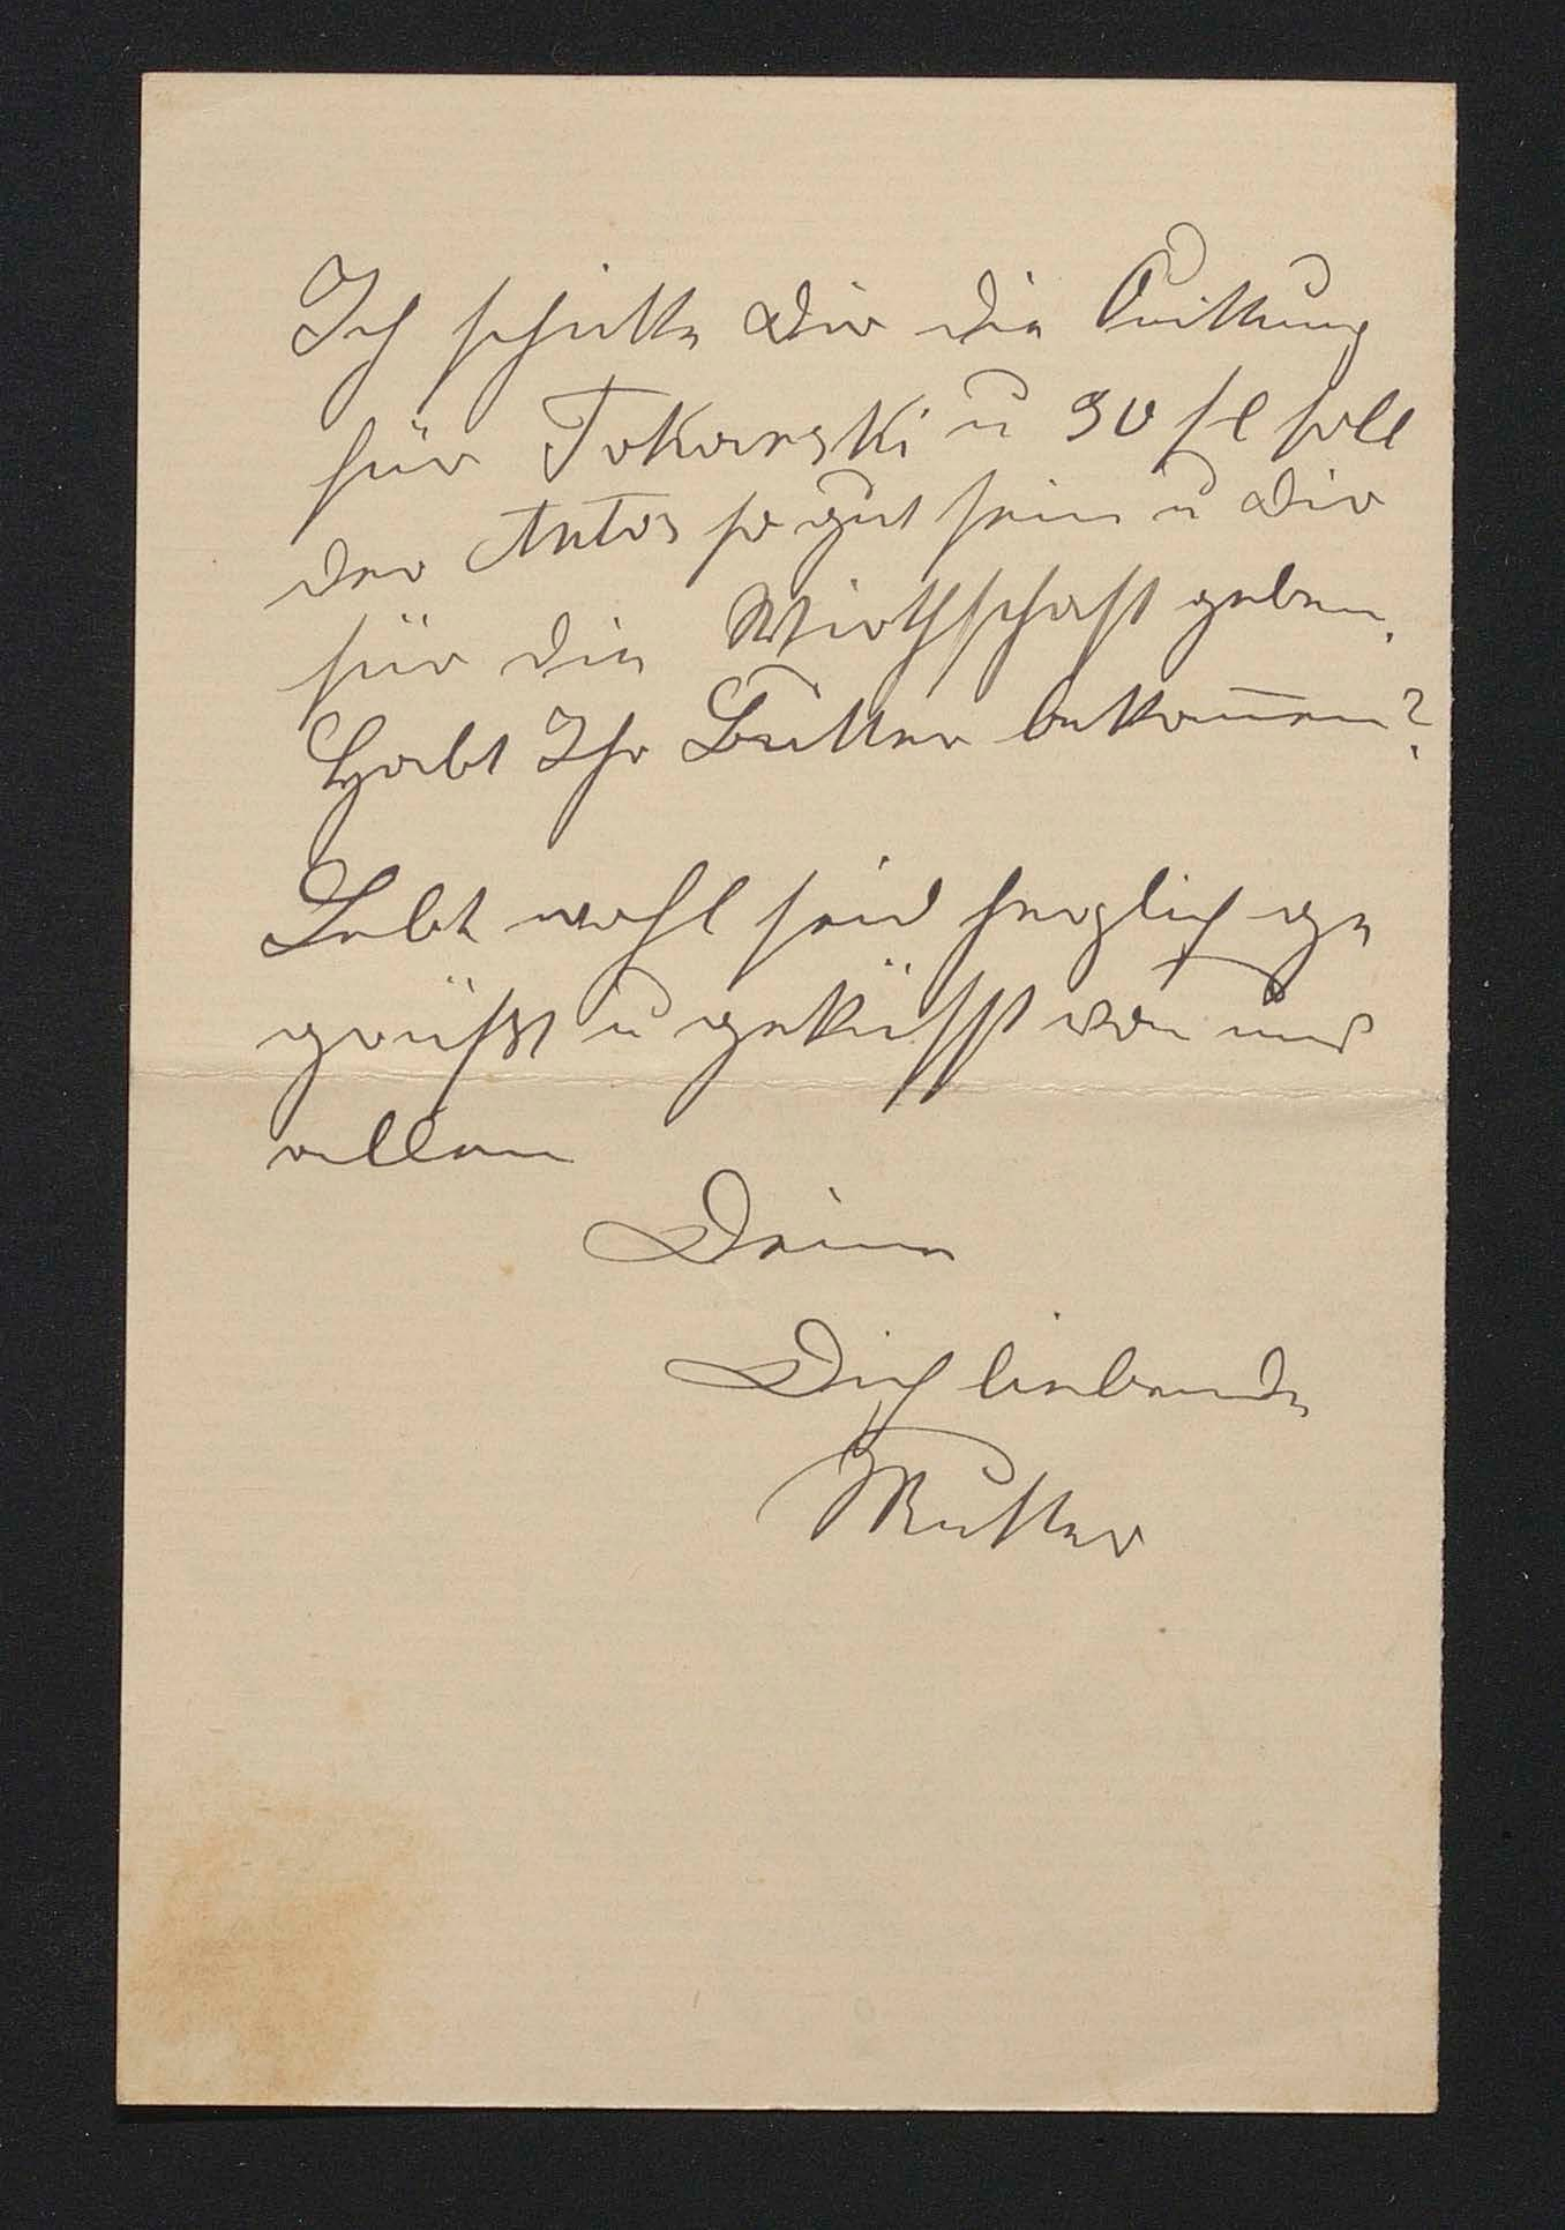 Ich schikke Dir die Quittung
für Tokarski u 30 fl soll
der Antos so gut sein u Dir
für die Wirthschaft geben.
Habt Ihr Butter bekom̅en?
Lebt wohl seid herzlich ge
grüßt u geküsst von uns
allen
Deine
Dich liebende
Mutter